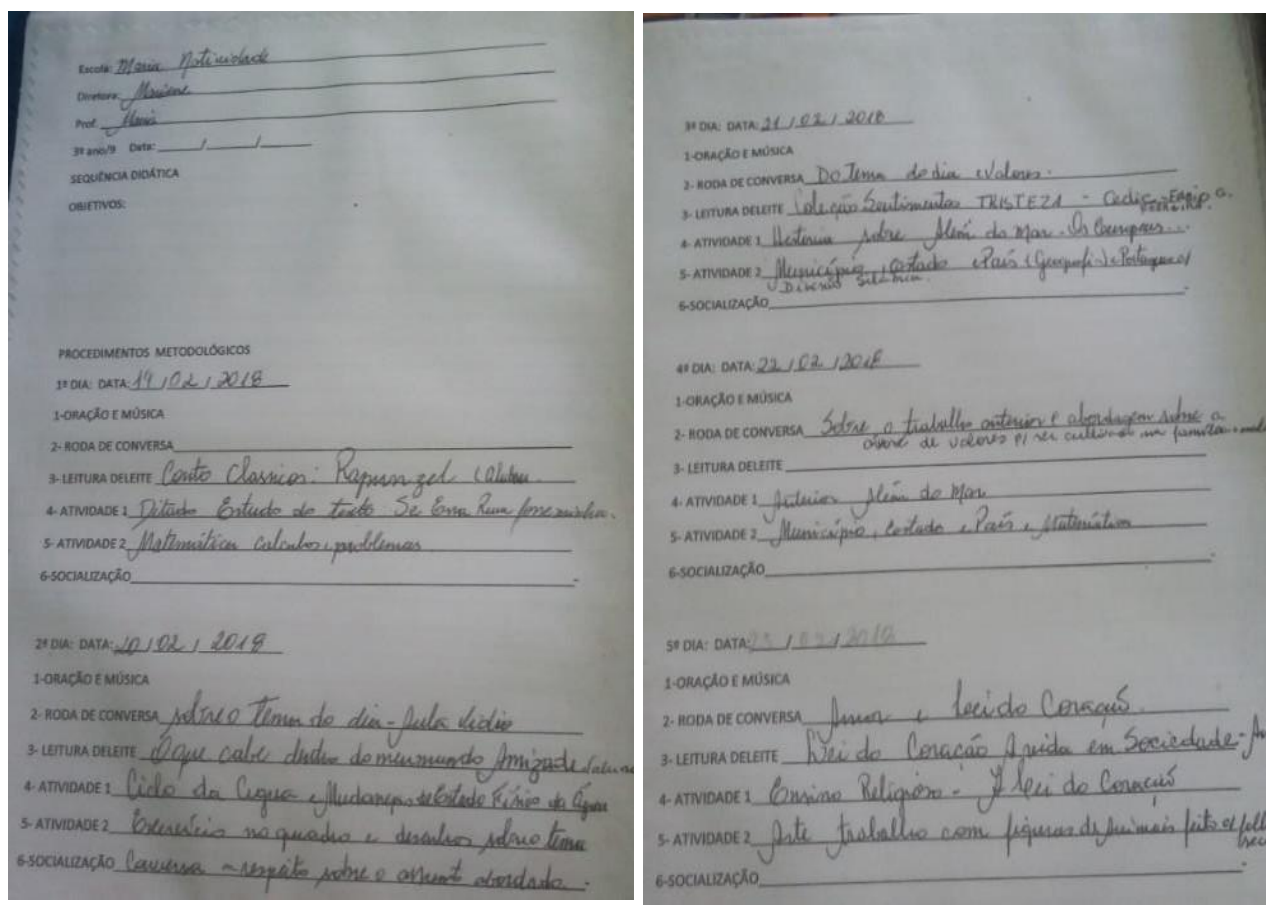 Escola: Maria Natividade
Diretora: Mariane
Prof. Maria
3º ano/9 Data: ____/____/____
SEQUÊNCIA DIDÁTICA
OBJETIVOS:
PROCEDIMENTOS METODOLÓGICOS
1º DIA: DATA: 19/02/2018
1-ORAÇÃO E MÚSICA
2- RODA DE CONVERSA
3- LEITURA DELEITE Conto Classicos: Rapunzel
4- ATIVIDADE 1 Ditado Estudo do texto Se Essa Rua fosse minha.
5- ATIVIDADE 2 Matemática calculos, problemas
6-SOCIALIZAÇÃO
2º DIA: DATA: 20/02/2018
1-ORAÇÃO E MÚSICA
2- RODA DE CONVERSA sobre o tema do dia - Aula
3- LEITURA DELEITE O que cabe dentro do meu mundo Amizade
4- ATIVIDADE 1 Ciclo da Água e Mudanças de Estado Físico da Água
5- ATIVIDADE 2 Exercício no quadro e desenhos sobre tema
6-SOCIALIZAÇÃO Conversa a respeito sobre o assunt abordado.
3º DIA: DATA: 21/02/2018
1-ORAÇÃO E MÚSICA
2- RODA DE CONVERSA Do Tema do dia e Valores.
3- LEITURA DELEITE Coleção Sentimentos TRISTEZA -
4- ATIVIDADE 1 Historia sobre Além do Mar - Os
5- ATIVIDADE 2 Município, estado e País (Geografia) e Portugues
Divisão Silábica
6-SOCIALIZAÇÃO
4º DIA: DATA: 22/02/2018
1-ORAÇÃO E MÚSICA
2- RODA DE CONVERSA Sobre o trabalho anterior e abordagem sobre a
de valores p/ ser cultivar na família
3- LEITURA DELEITE
4- ATIVIDADE 1 Além do Mar
5- ATIVIDADE 2 Município, Estado e País e Matemática
6-SOCIALIZAÇÃO
5º DIA: DATA: 23/02/2018
1-ORAÇÃO E MÚSICA
2- RODA DE CONVERSA Amor e Lei do Coração.
3- LEITURA DELEITE Lei do Coração A vida em Sociedade-
4- ATIVIDADE 1 Ensino Religioso - A Lei do Coração
5- ATIVIDADE 2 Arte trabalho com figuras de animais feito c/
6-SOCIALIZAÇÃO